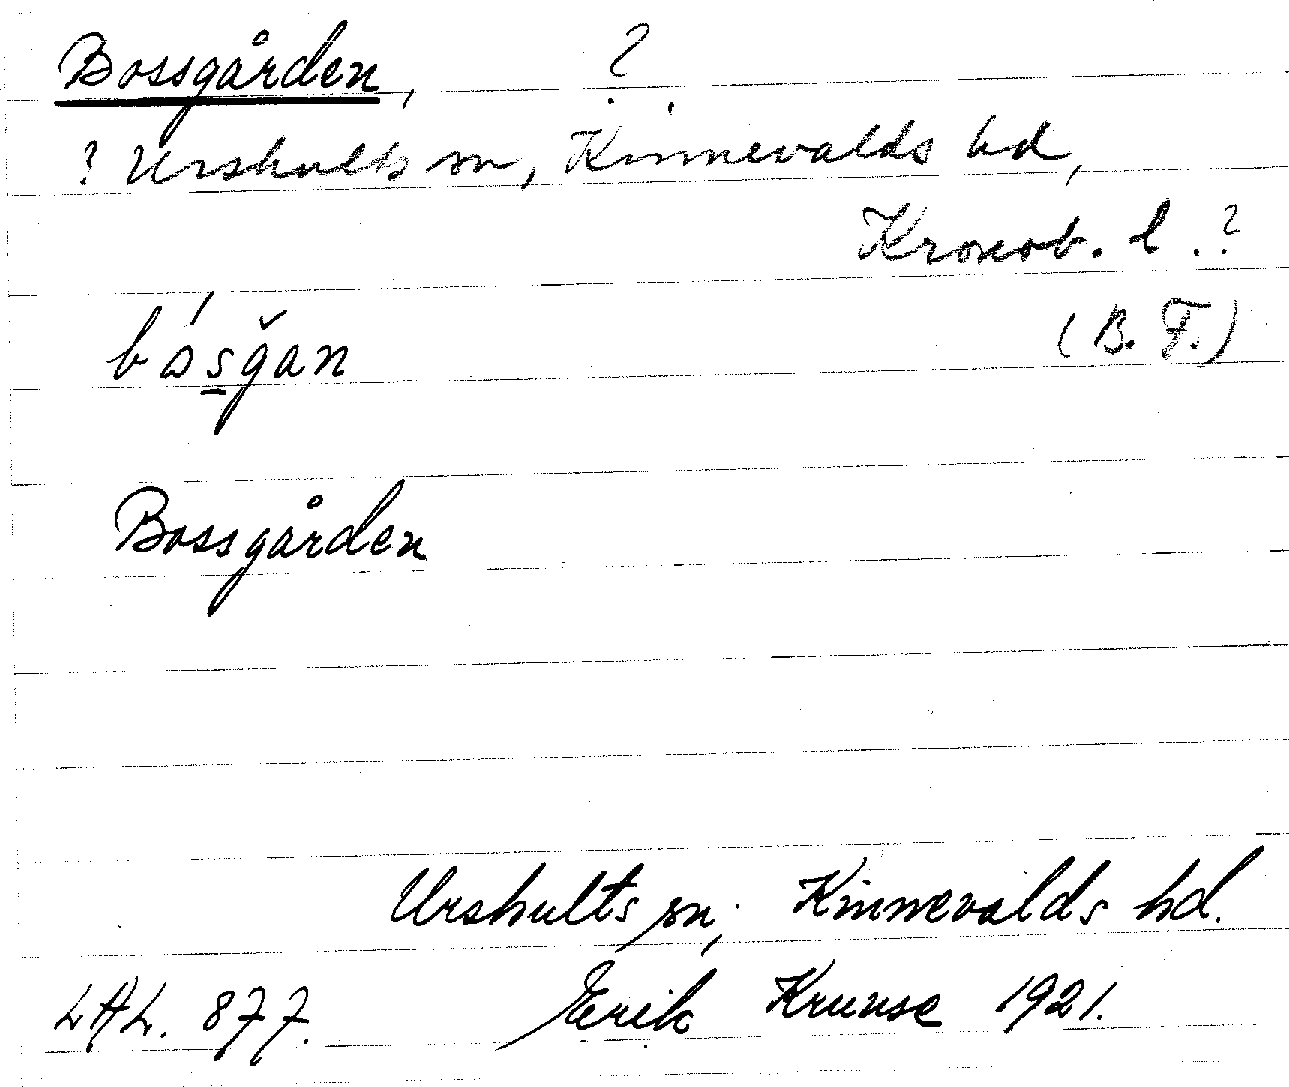 Bossgården, ?
? Urshults sn, Kinnevalds hd,
Kronob. l. ?
(B. F.)
bósğan
Bossgården
Urshults sn, Kinnevalds hd.
LAL. 877. Erik Kruuse 1921.